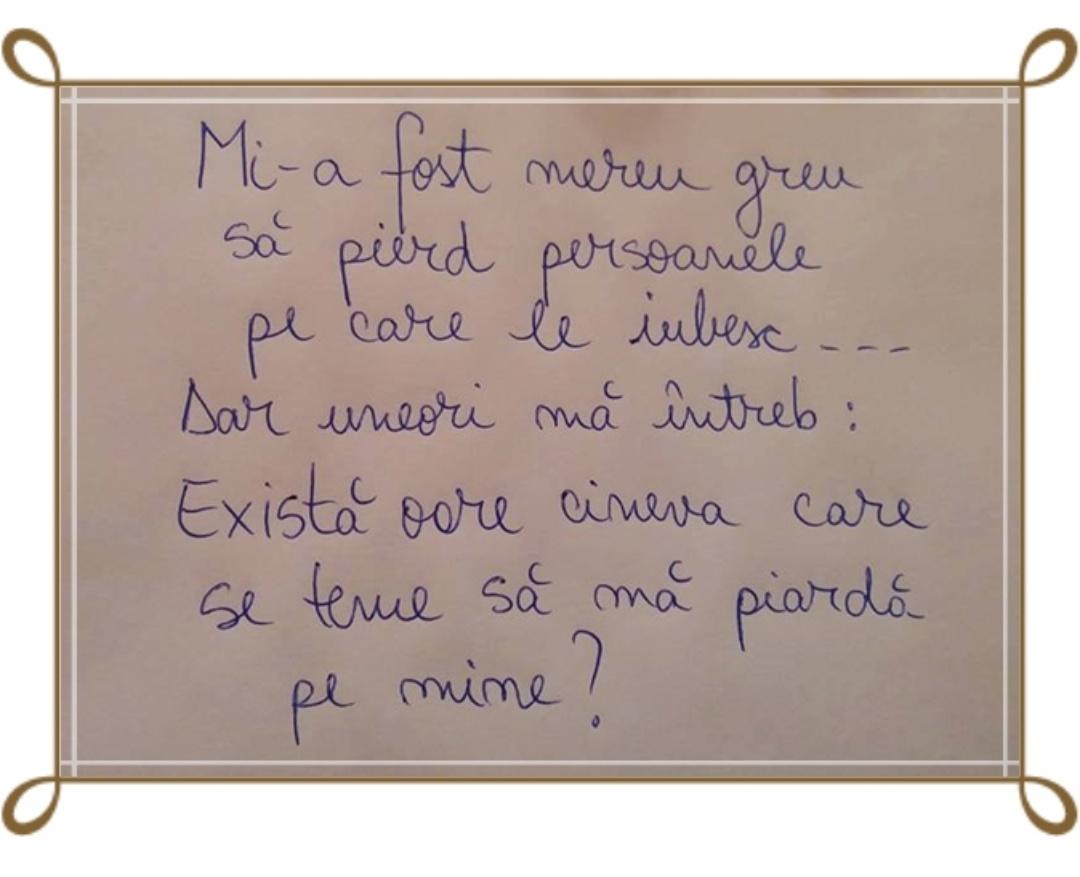 Mi-a fost mereu greu
să pierd persoanele
pe care le iubesc ---
Dar uneori mă întreb :
Există oare cineva care
se teme să mă piardă
pe mine?